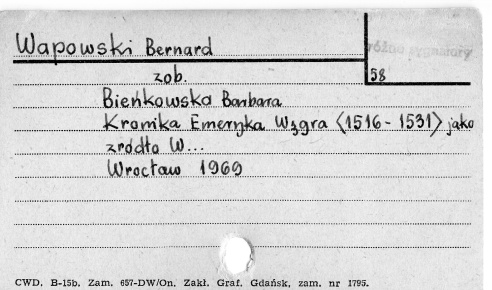 Wapowski Bernard
różne sygnatury
58
zob.
Bieńkowska Barbara
Kronika Emeryka Węgra <1516 - 1531> jako
źródło W...
Wrocław 1969
CWD. B-15b. Zam. 657-DW/On. Zakł. Graf. Gdańsk, zam. nr 1795.